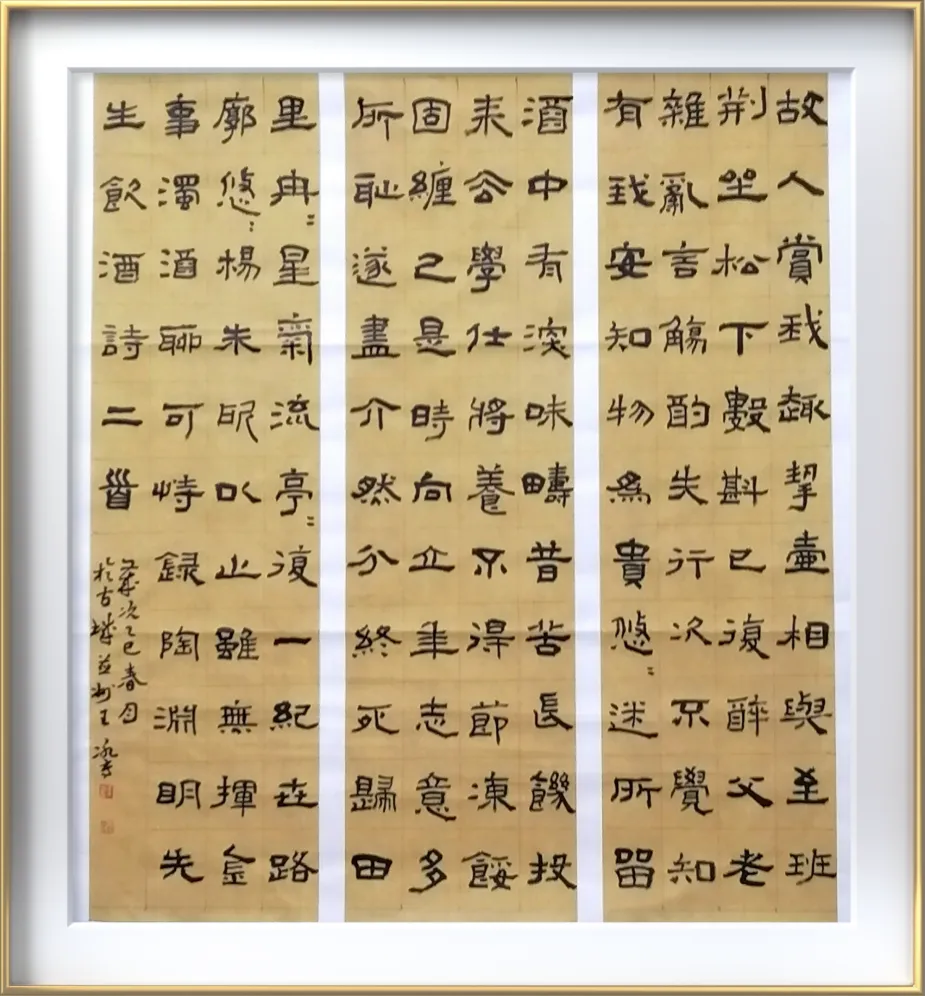 故人賞我趣挈壺相與至班
荆坐松下數斟已復醉父老
雜亂言觴酌失行次不覺知
有我安知物為貴悠〻迷所留
酒中有深味疇昔苦長饑投
耒去學仕將養不得節凍餒
固纏己是時向立年志意多
所恥遂盡介然分終死歸田
里冉〻星氣流亭〻復一紀世路
廓悠〻楊朱所以止雖無揮金
事濁酒聊可恃録陶淵明先
生飲酒詩二首
歲次乙巳春月
於古城並州王